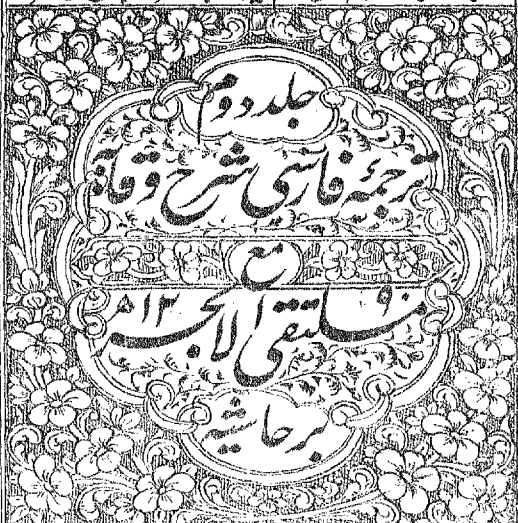 جلد دوم
ترجمۂ فارسی شرح وقایة
مع
ملتقی الابحر ۱۳۰۹ھ
برحاشیه